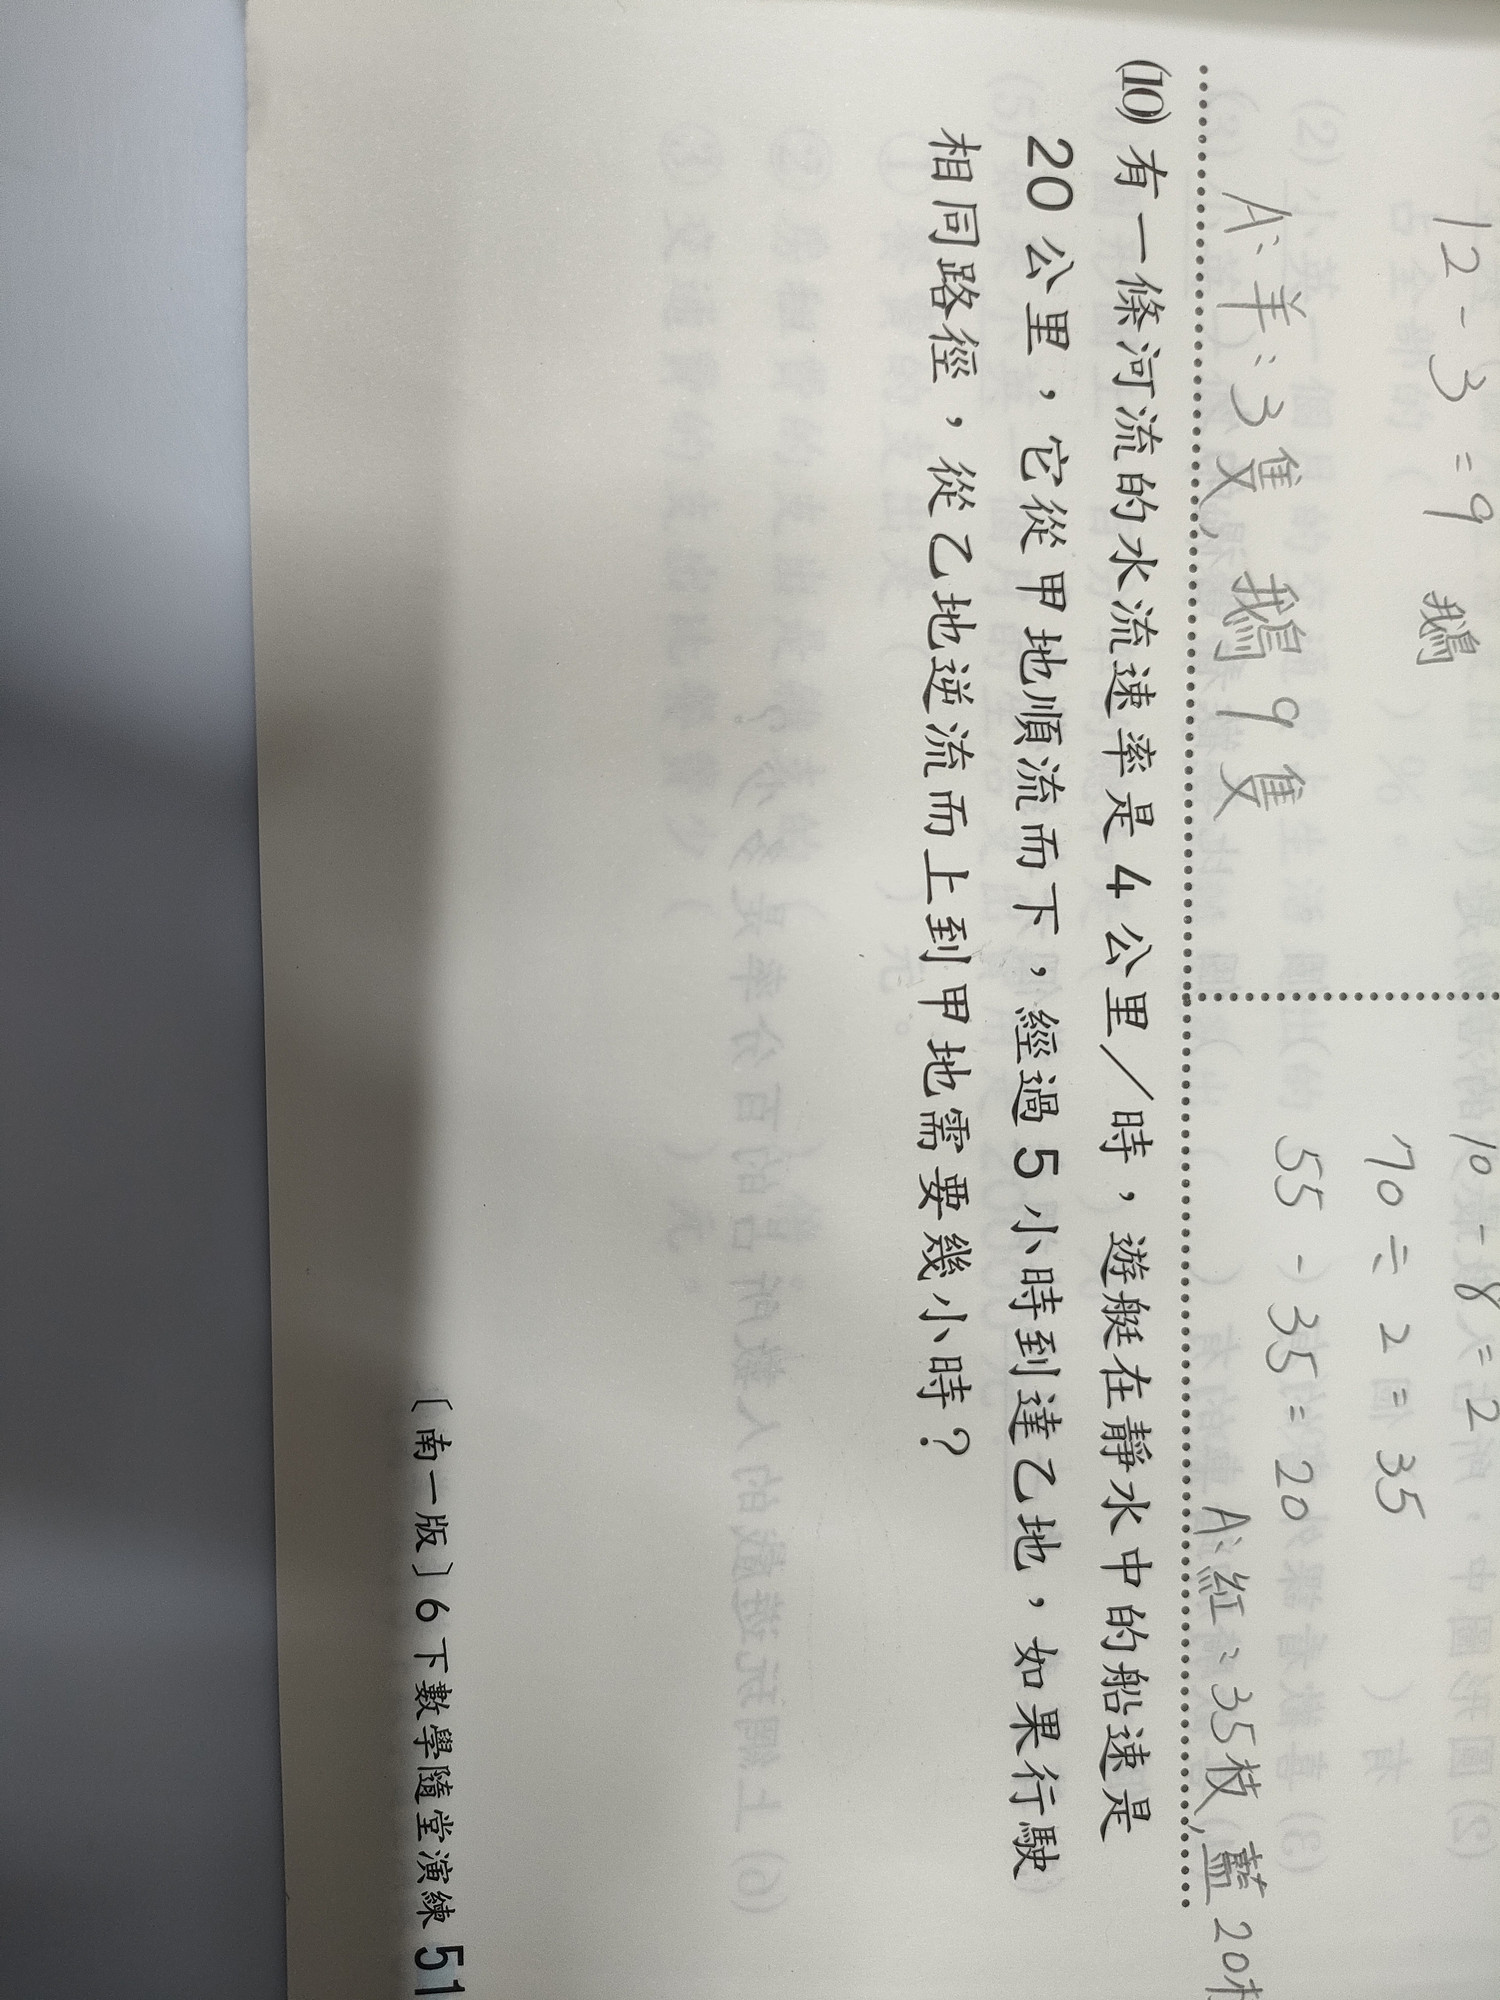 12 - 3 = 9 鵝
A: 羊: 3 隻, 鵝 9 隻
10 - 8 = 2
70 ÷ 2 = 35
55 - 35 = 20
A: 紅: 35枝, 藍 20
⑽ 有一條河流的水流速率是 4 公里/時，遊艇在靜水中的船速是
20 公里，它從甲地順流而下，經過 5 小時到達乙地，如果行駛
相同路徑，從乙地逆流而上到甲地需要幾小時？
〔南一版〕6 下數學隨堂演練 51